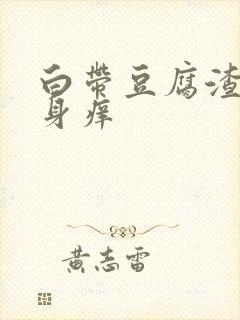 白带豆腐渣
身痒
黄志雷